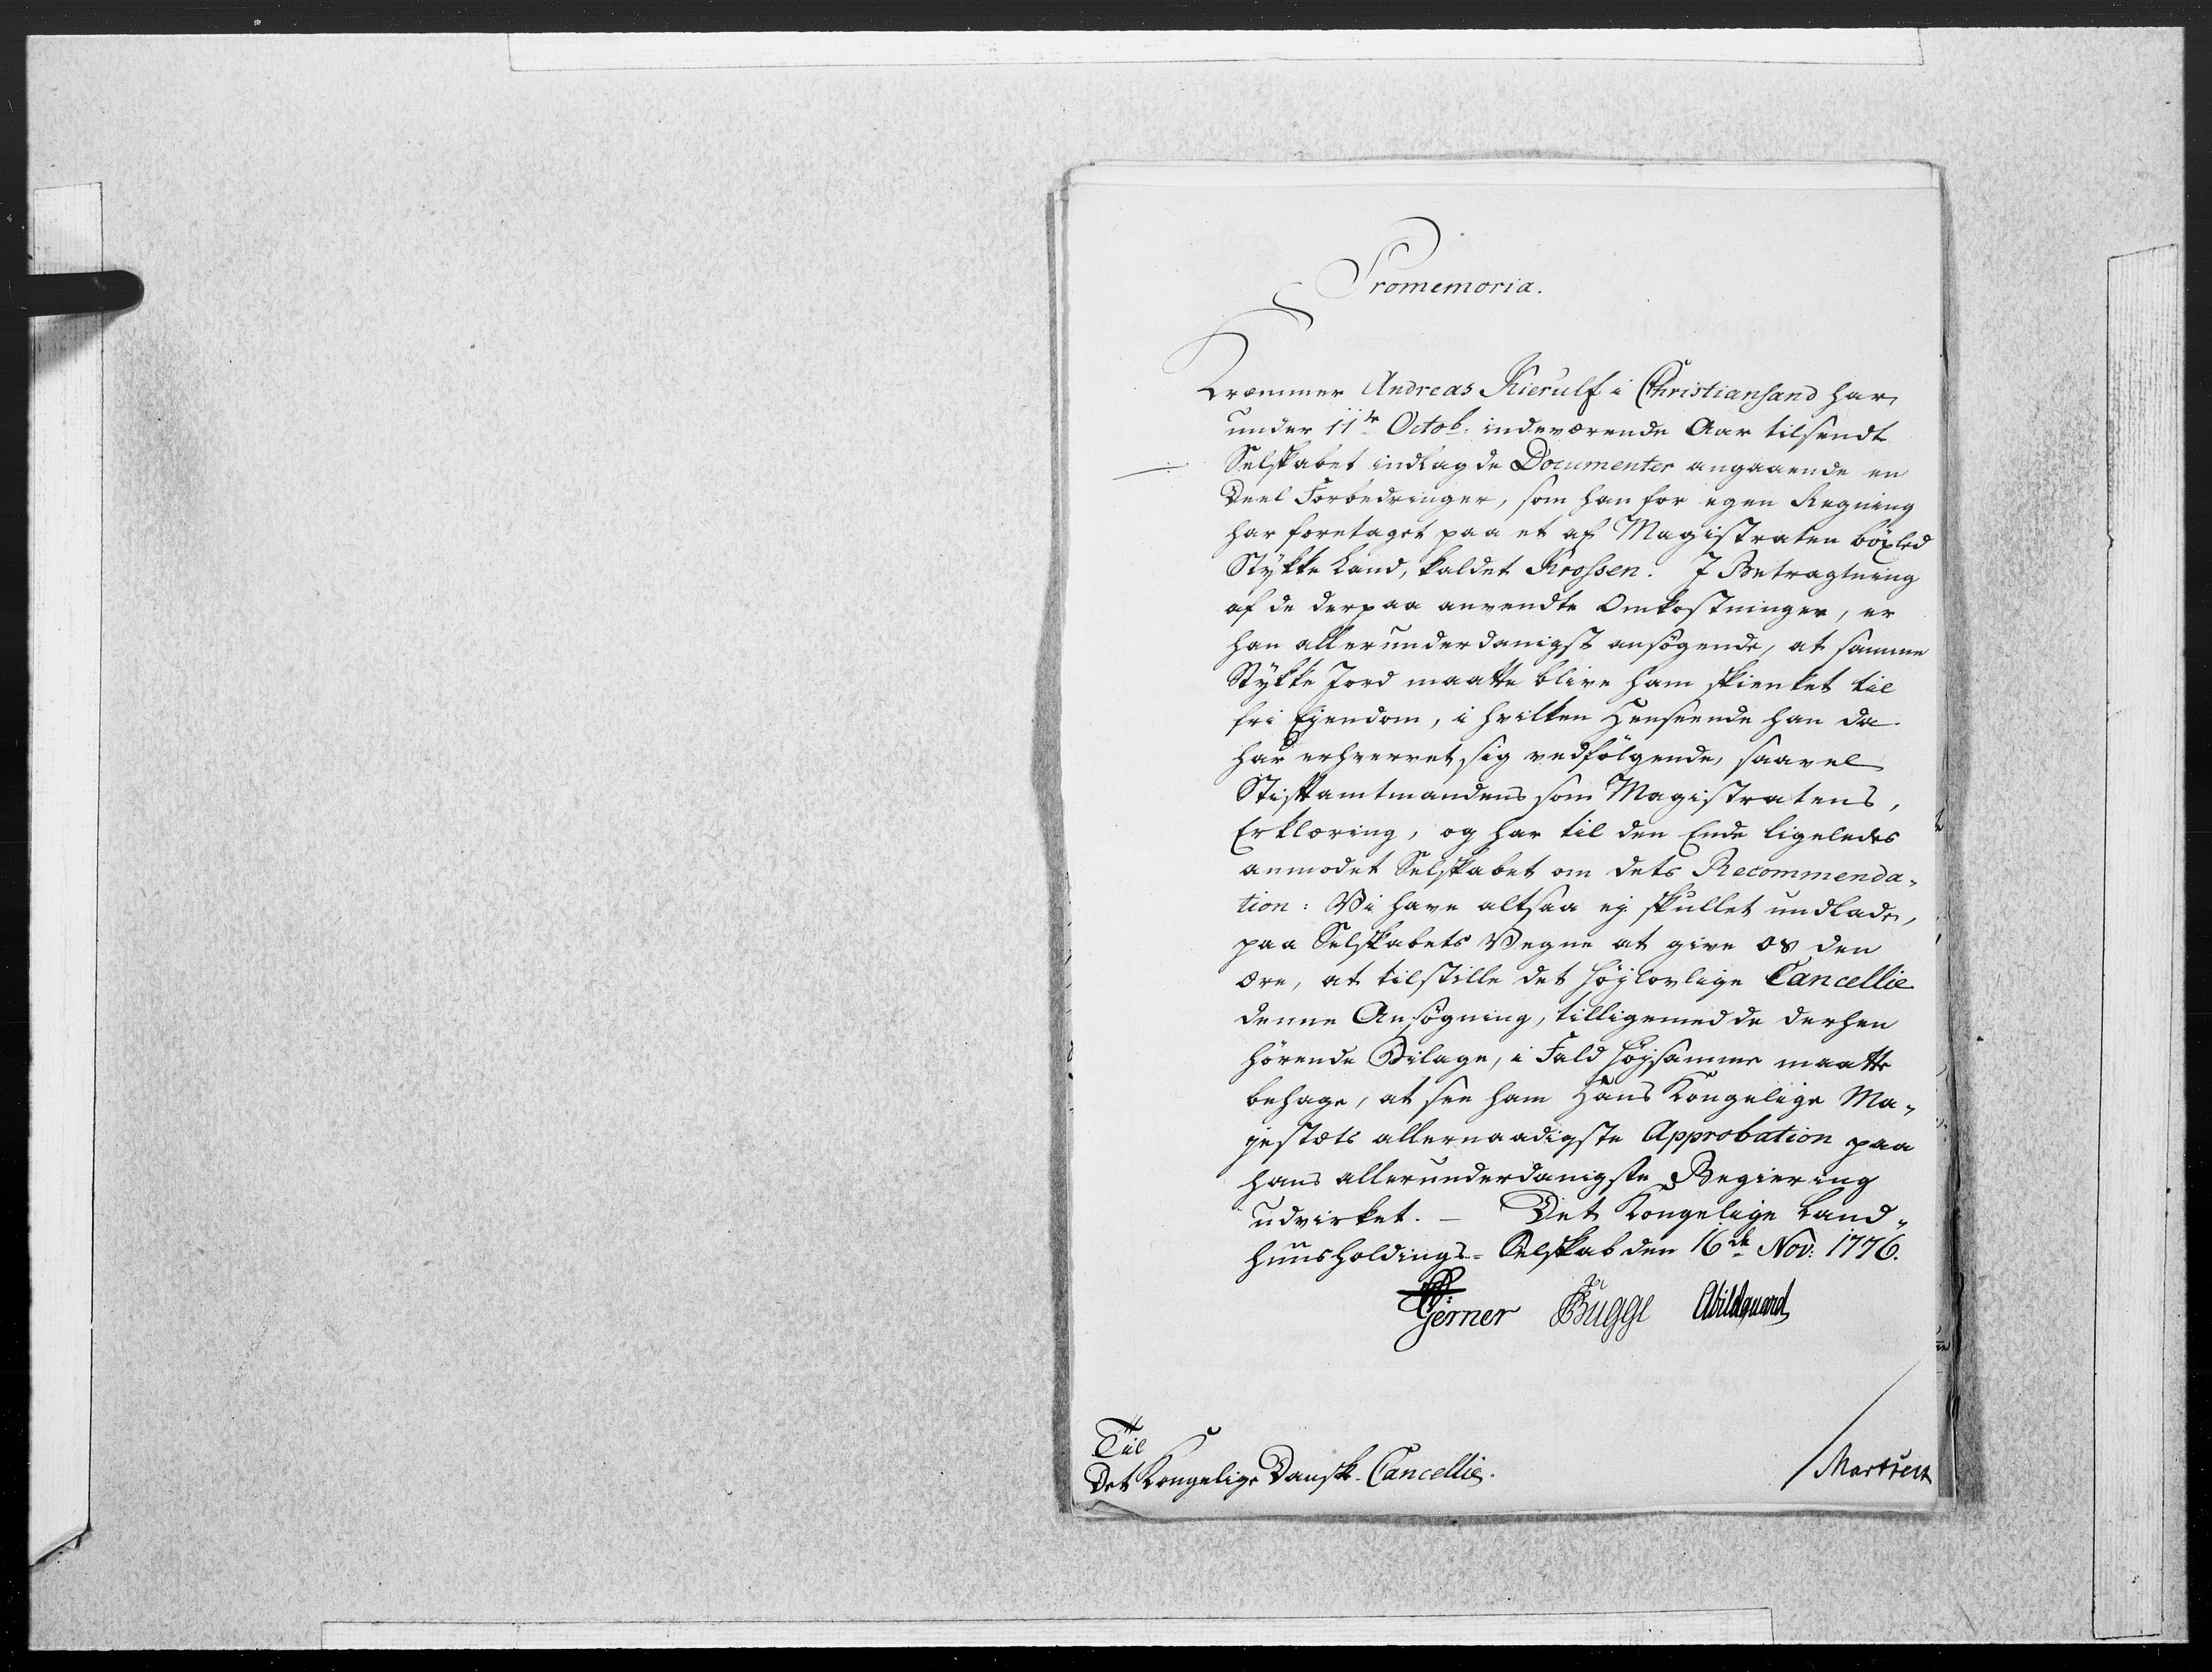 Promemoria.
Kræmmer Andreas Kierulf i Christiansand har
under 11te Octob. indeværende Aar tilsendt
Selskabet indlagde Documenter angaaende en
Deel Forbedringer, som han for egen Regning
har foretaget paa et af Magistraten böxled
Stykke Land, kaldet Krossen. I Betragtning
af de derpaa anvendte Omkostninger, er
han allerunderdanigst ansøgende, at samme
Stykke Jord maatte blive ham skienket til
fri Ejendom, i hvilken Henseende han da
har erhvervet sig vedfølgende, saavel
Stiftamtmandens som Magistratens,
Erklæring, og har til den Ende ligeledes
anmodet Selskabet om dets Recommenda-
tion: Vi have altsaa ej skullet undlade,
paa Selskabets Vegne at give os den
Ære, at tilstille det höjlovlige Cancellie
denne Ansøgning, tilligemed de derhen
hörende Bilage, i Fald höjsamme maatte
behage, at see ham Hans Kongelige Ma-
jestæts allernaadigste Approbation paa
hans allerunderdanigste Begiering
udvirket. — Det Kongelige Land-
huusholdings-Selskab den 16de Nov: 1776.
Gerner Bugge Abildgaard
Martfelt
Til
Det Kongelige Dansk. Cancellie.